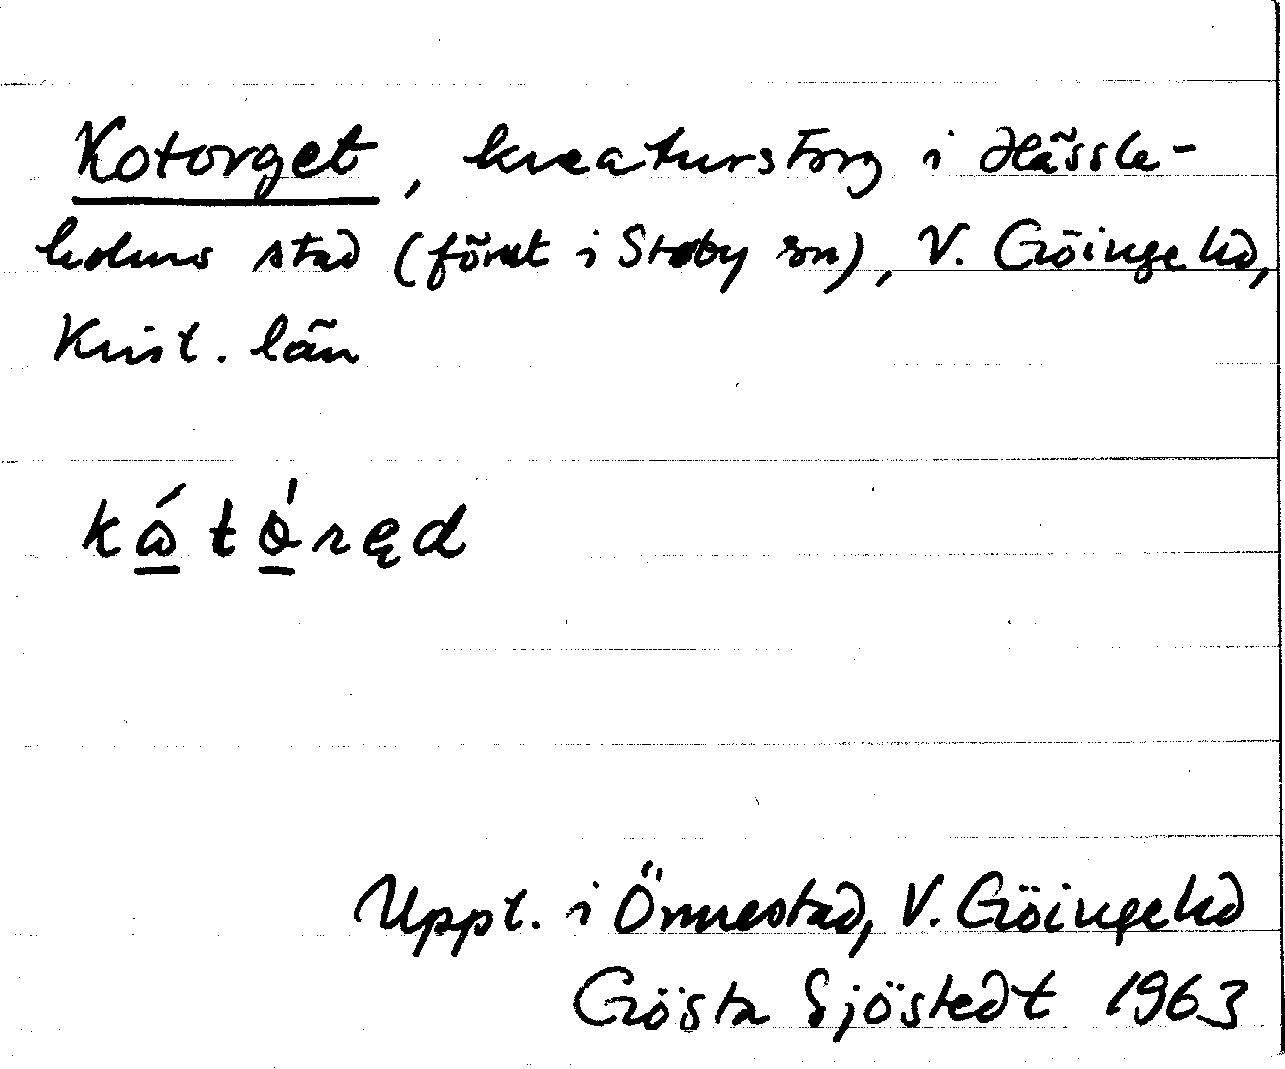 Kotorget, kreaturstorg i Hässle-
holms stad (förut i Stoby sn), V. Göinge hd,
Krist. län
Uppt. i Önnestad, V. Göinge hd
Gösta Sjöstedt 1963